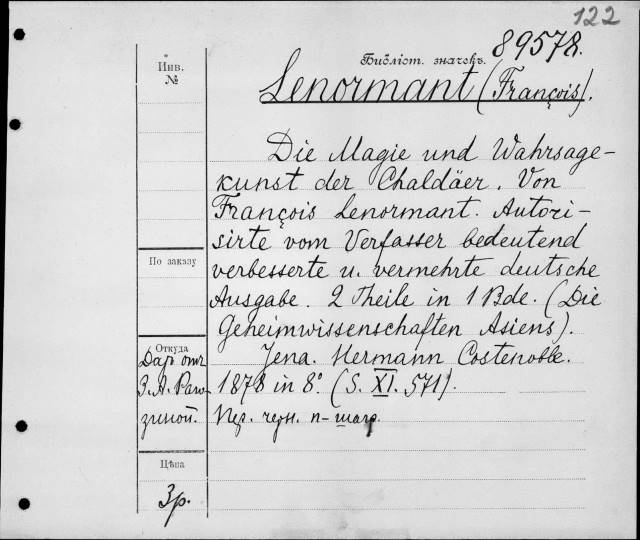 122
Библіот. значекъ. 89578.
Инв.
№
Lenormant (François).
Die Magie und Wahrsage-
kunst der Chaldäer. Von
François Lenormant. Autori-
sirte vom Verfasser bedeutend
verbesserte u. vermehrte deutsche
Ausgabe. 2 Theile in 1 Bde. (Die
Geheimwissenschaften Asiens).
Jena. Hermann Costenoble.
1878 in 8°. (S. XI. 571).
Пер. черн. п-шагр.
По заказу
Откуда
Даръ отъ
З. А. Раго-
зиной.
Цѣна
3р.